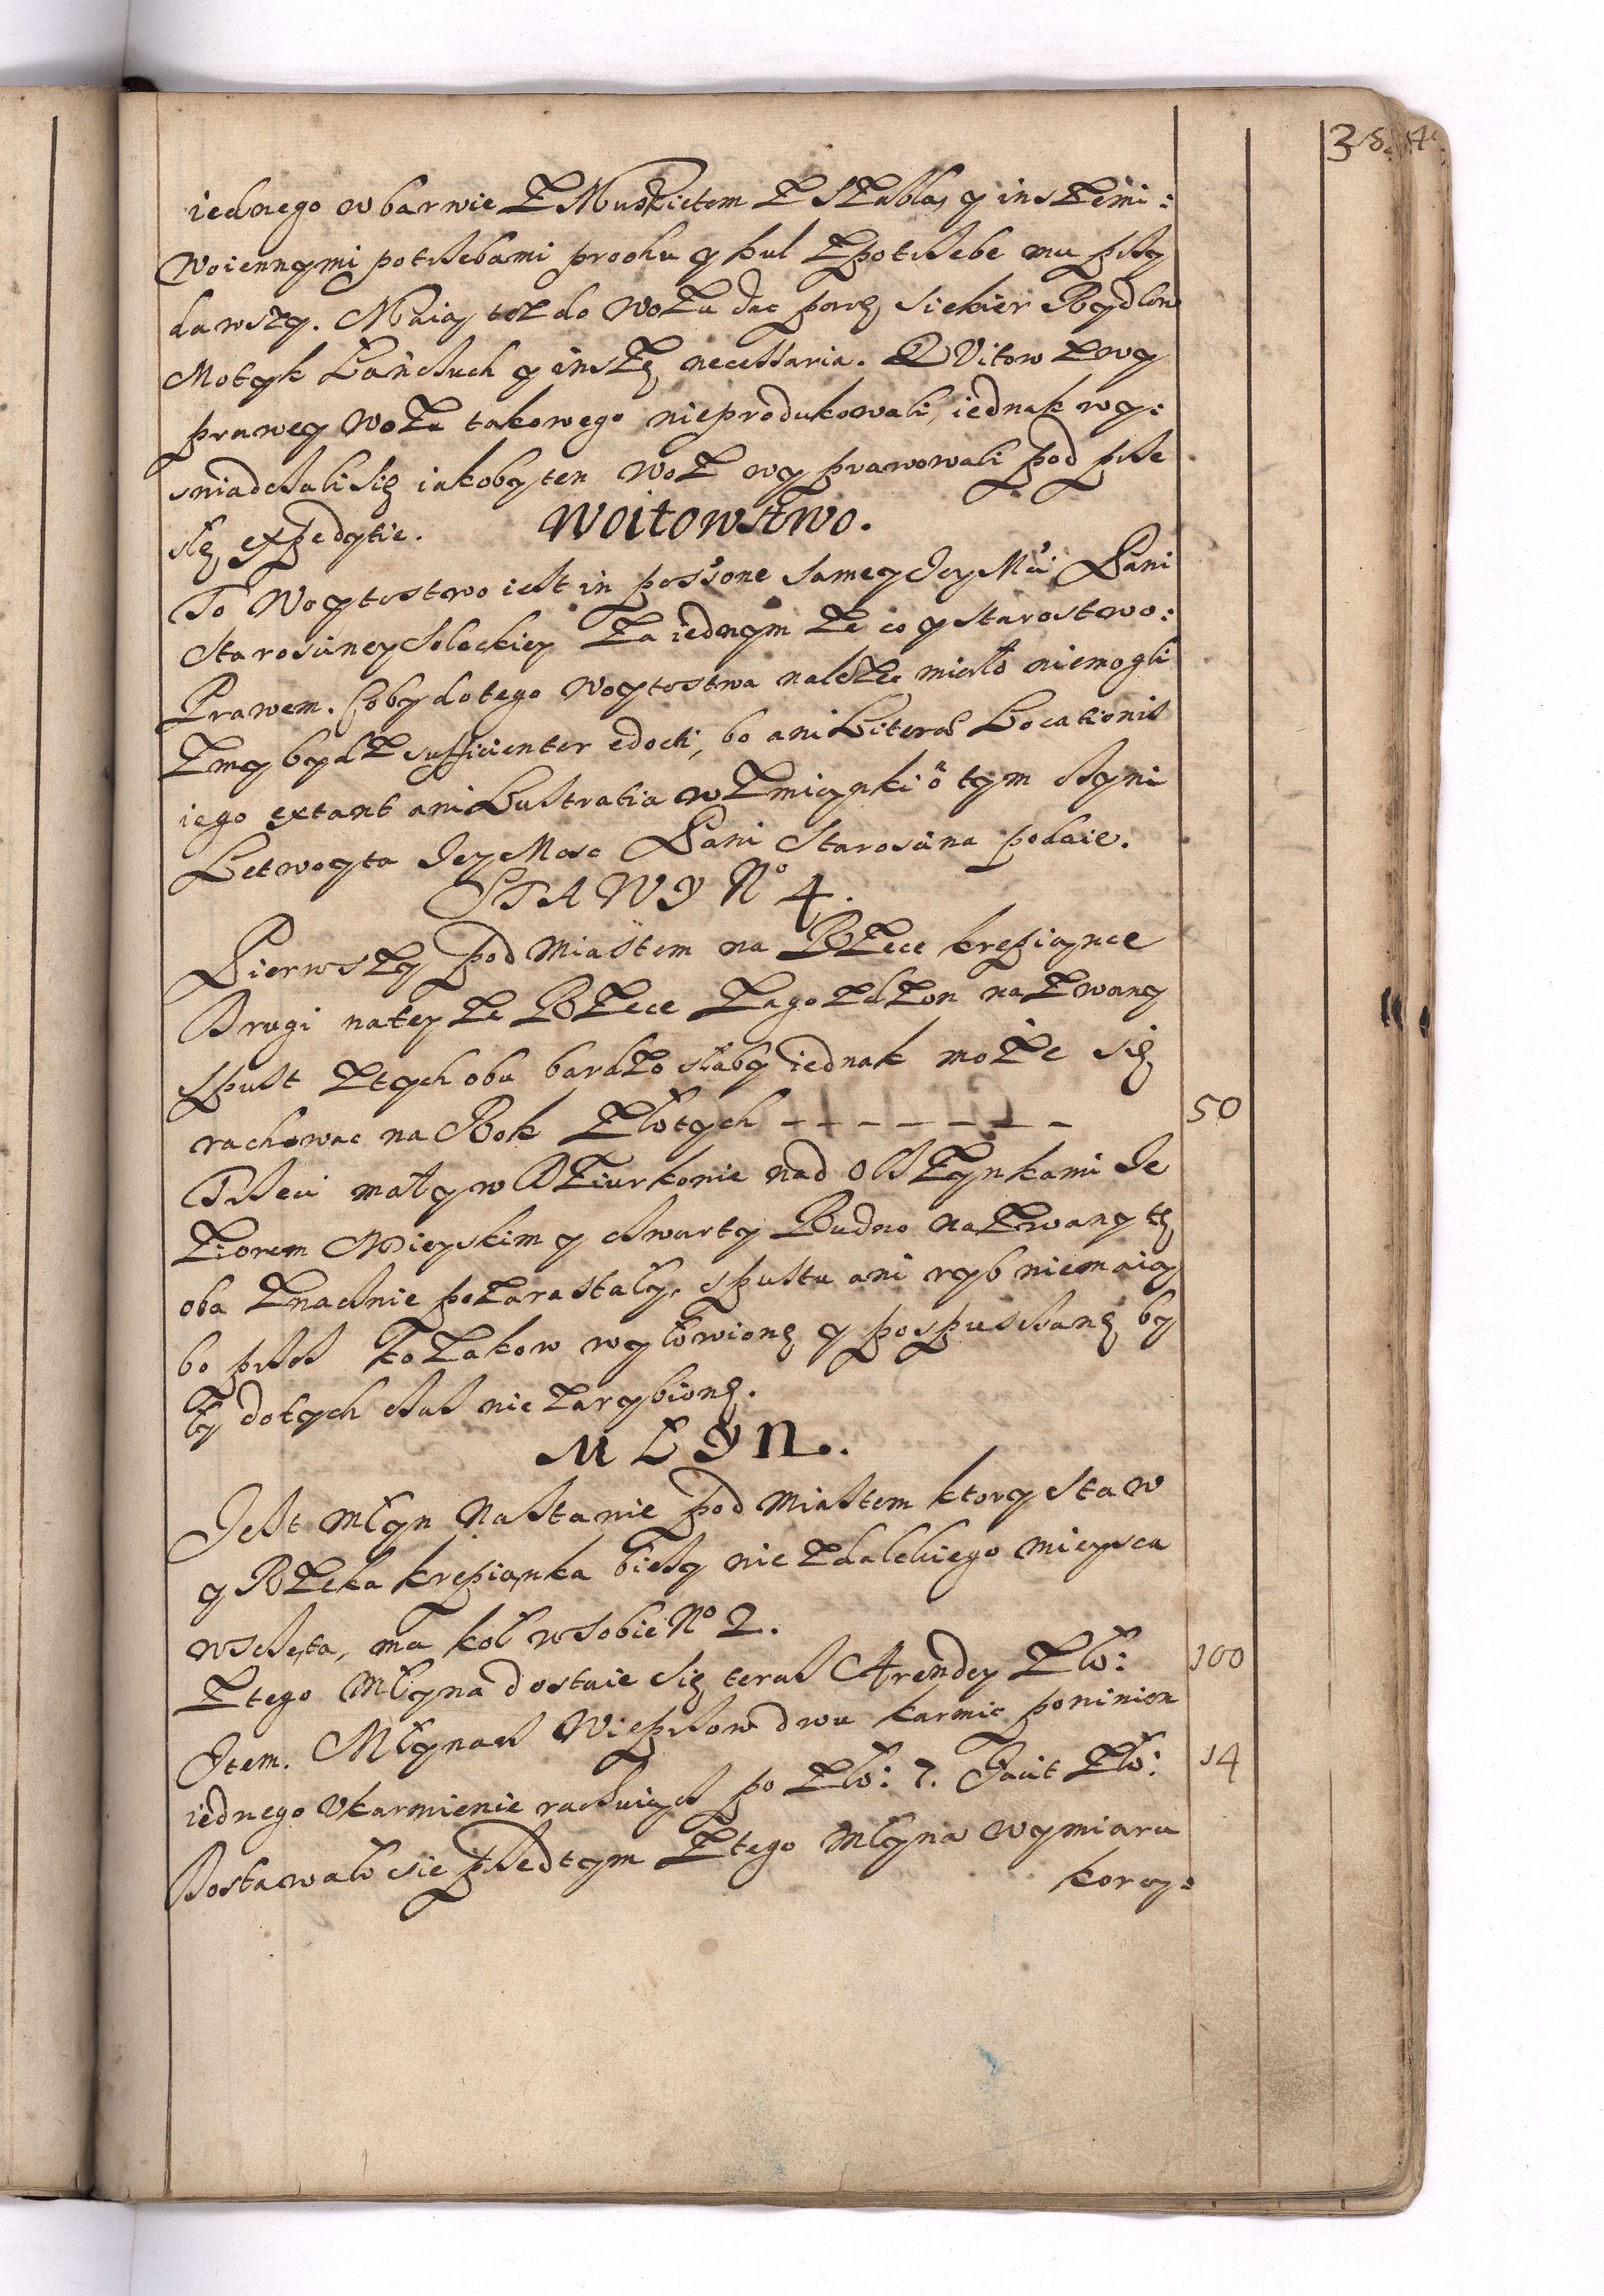 iednego w barwie z Muszkietem z szablą y inszemi:
Woiennymi potrzebami prochu y kul z potrzebe mu przy
dawszy. Maią też do woza dac parę siekier Rydlow
Motyk Łańczuch y inszę necessaria. Quitow z wy
prawey Woza takowego nieprodukowali, iednak wy:
swiadczali się iakoby ten Woz wyprawowali pod prze
słę expedytie.
Woitowstwo.
To Woytostwo iest in possone samey Jey Mći Pani
Starosciney Soleckiey za iednym że co y starostwo:
Prawem. Coby do tego Woytostwa należec miało niemogli
zmy bydz sufficienter edocti, bo ani Literæ Locationis
iego extant ani Lustratia wzmiąnki o tym czyni
Letwoyta Jey Mosc Pani Staroscina podaie.
STAWY No 4.
Pierwszy pod Miastem na Rzece krepiąnce
Drugi na tey że Rzece Zagozdzon nazwany
spust z tych obu bardzo słaby iednak może się
rachowac na Rok złotych - - - - - - - - -
50
Trzeci mały w Dziurkonie nad Olszynkami Je
ziorem Mieyskim y czwarty Rudno nazwany tę
oba znacznie pozarastały, spustu ani ryb niemaią
bo przez kozakow wyłowionę y pospuszczanę by
ły dotych czas nie zarybionę.
MŁYN.
Jest Młyn na stawie pod Miastem ktory staw
y Rzeka krepiąnka bieży nie z dalekiego mieysca
wszczęta, ma koł w sobie No 2.
z tego Młyna dostaie się teraz Arendy zło:
100
Item. Młynarz Wieprzow dwu karmic powinien
iednego vkarmienie rachuiącz po zło: 7. Facit zło:
14
Dostawało sie przedtym z tego Młyna wymiaru
korcy: